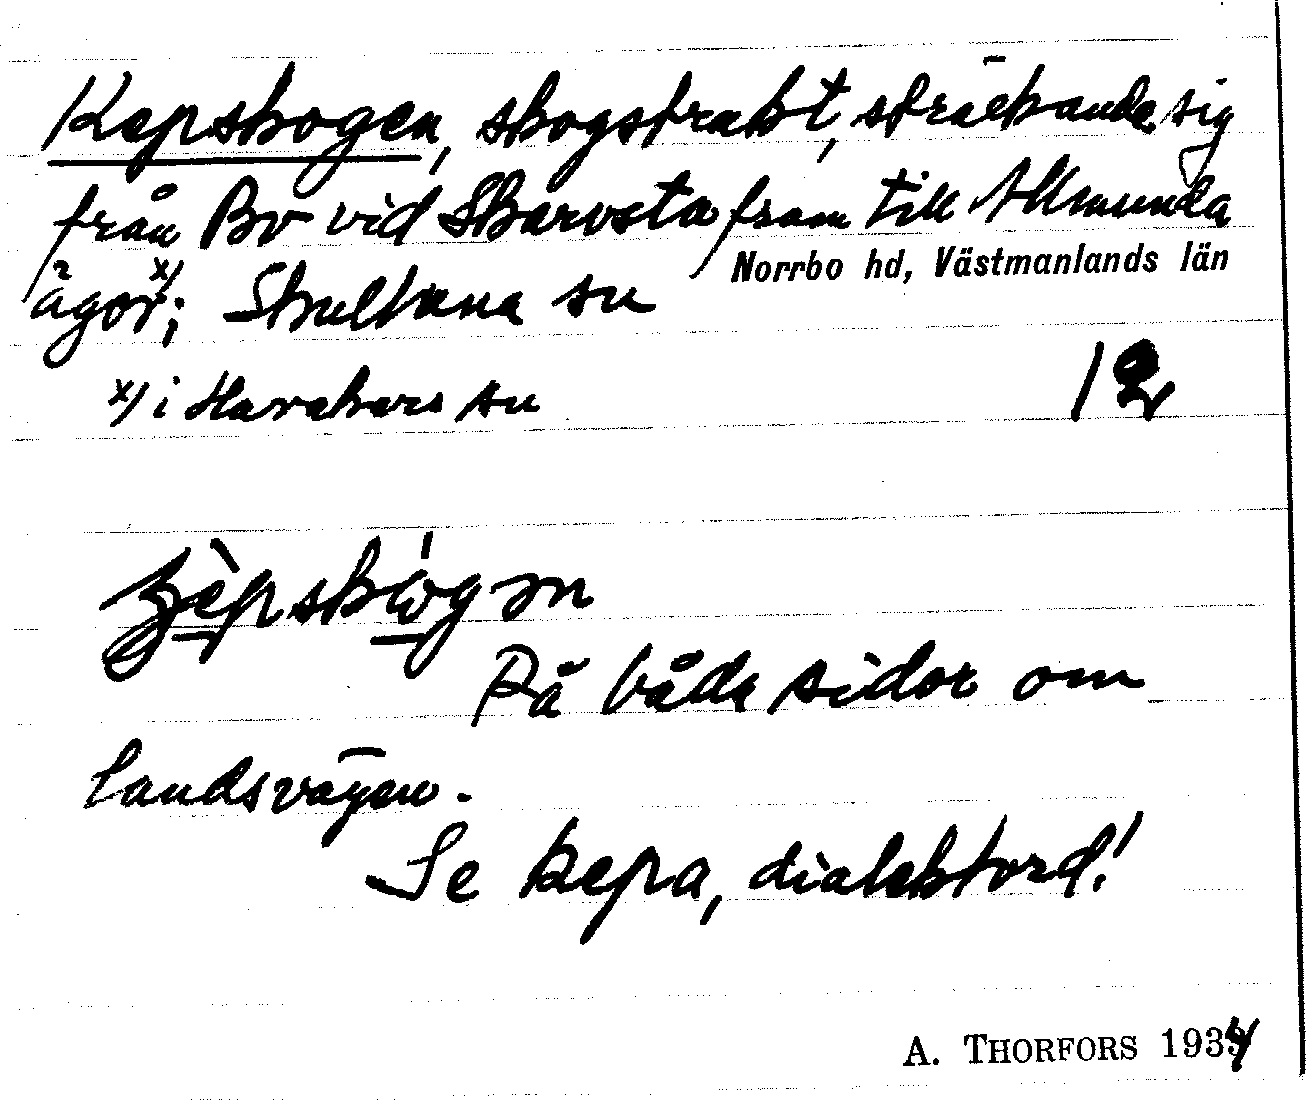 Kepskogen, skogstrakt, sträckande sig
från Bv vid Skarvsta fram till Allmunda
Norrbo hd, Västmanlands län
ägor x); Skultuna sn
x) i Harakers sn
12
På båda sidor om
landsvägen.
Se kepa, dialektord!
A. THORFORS 1934